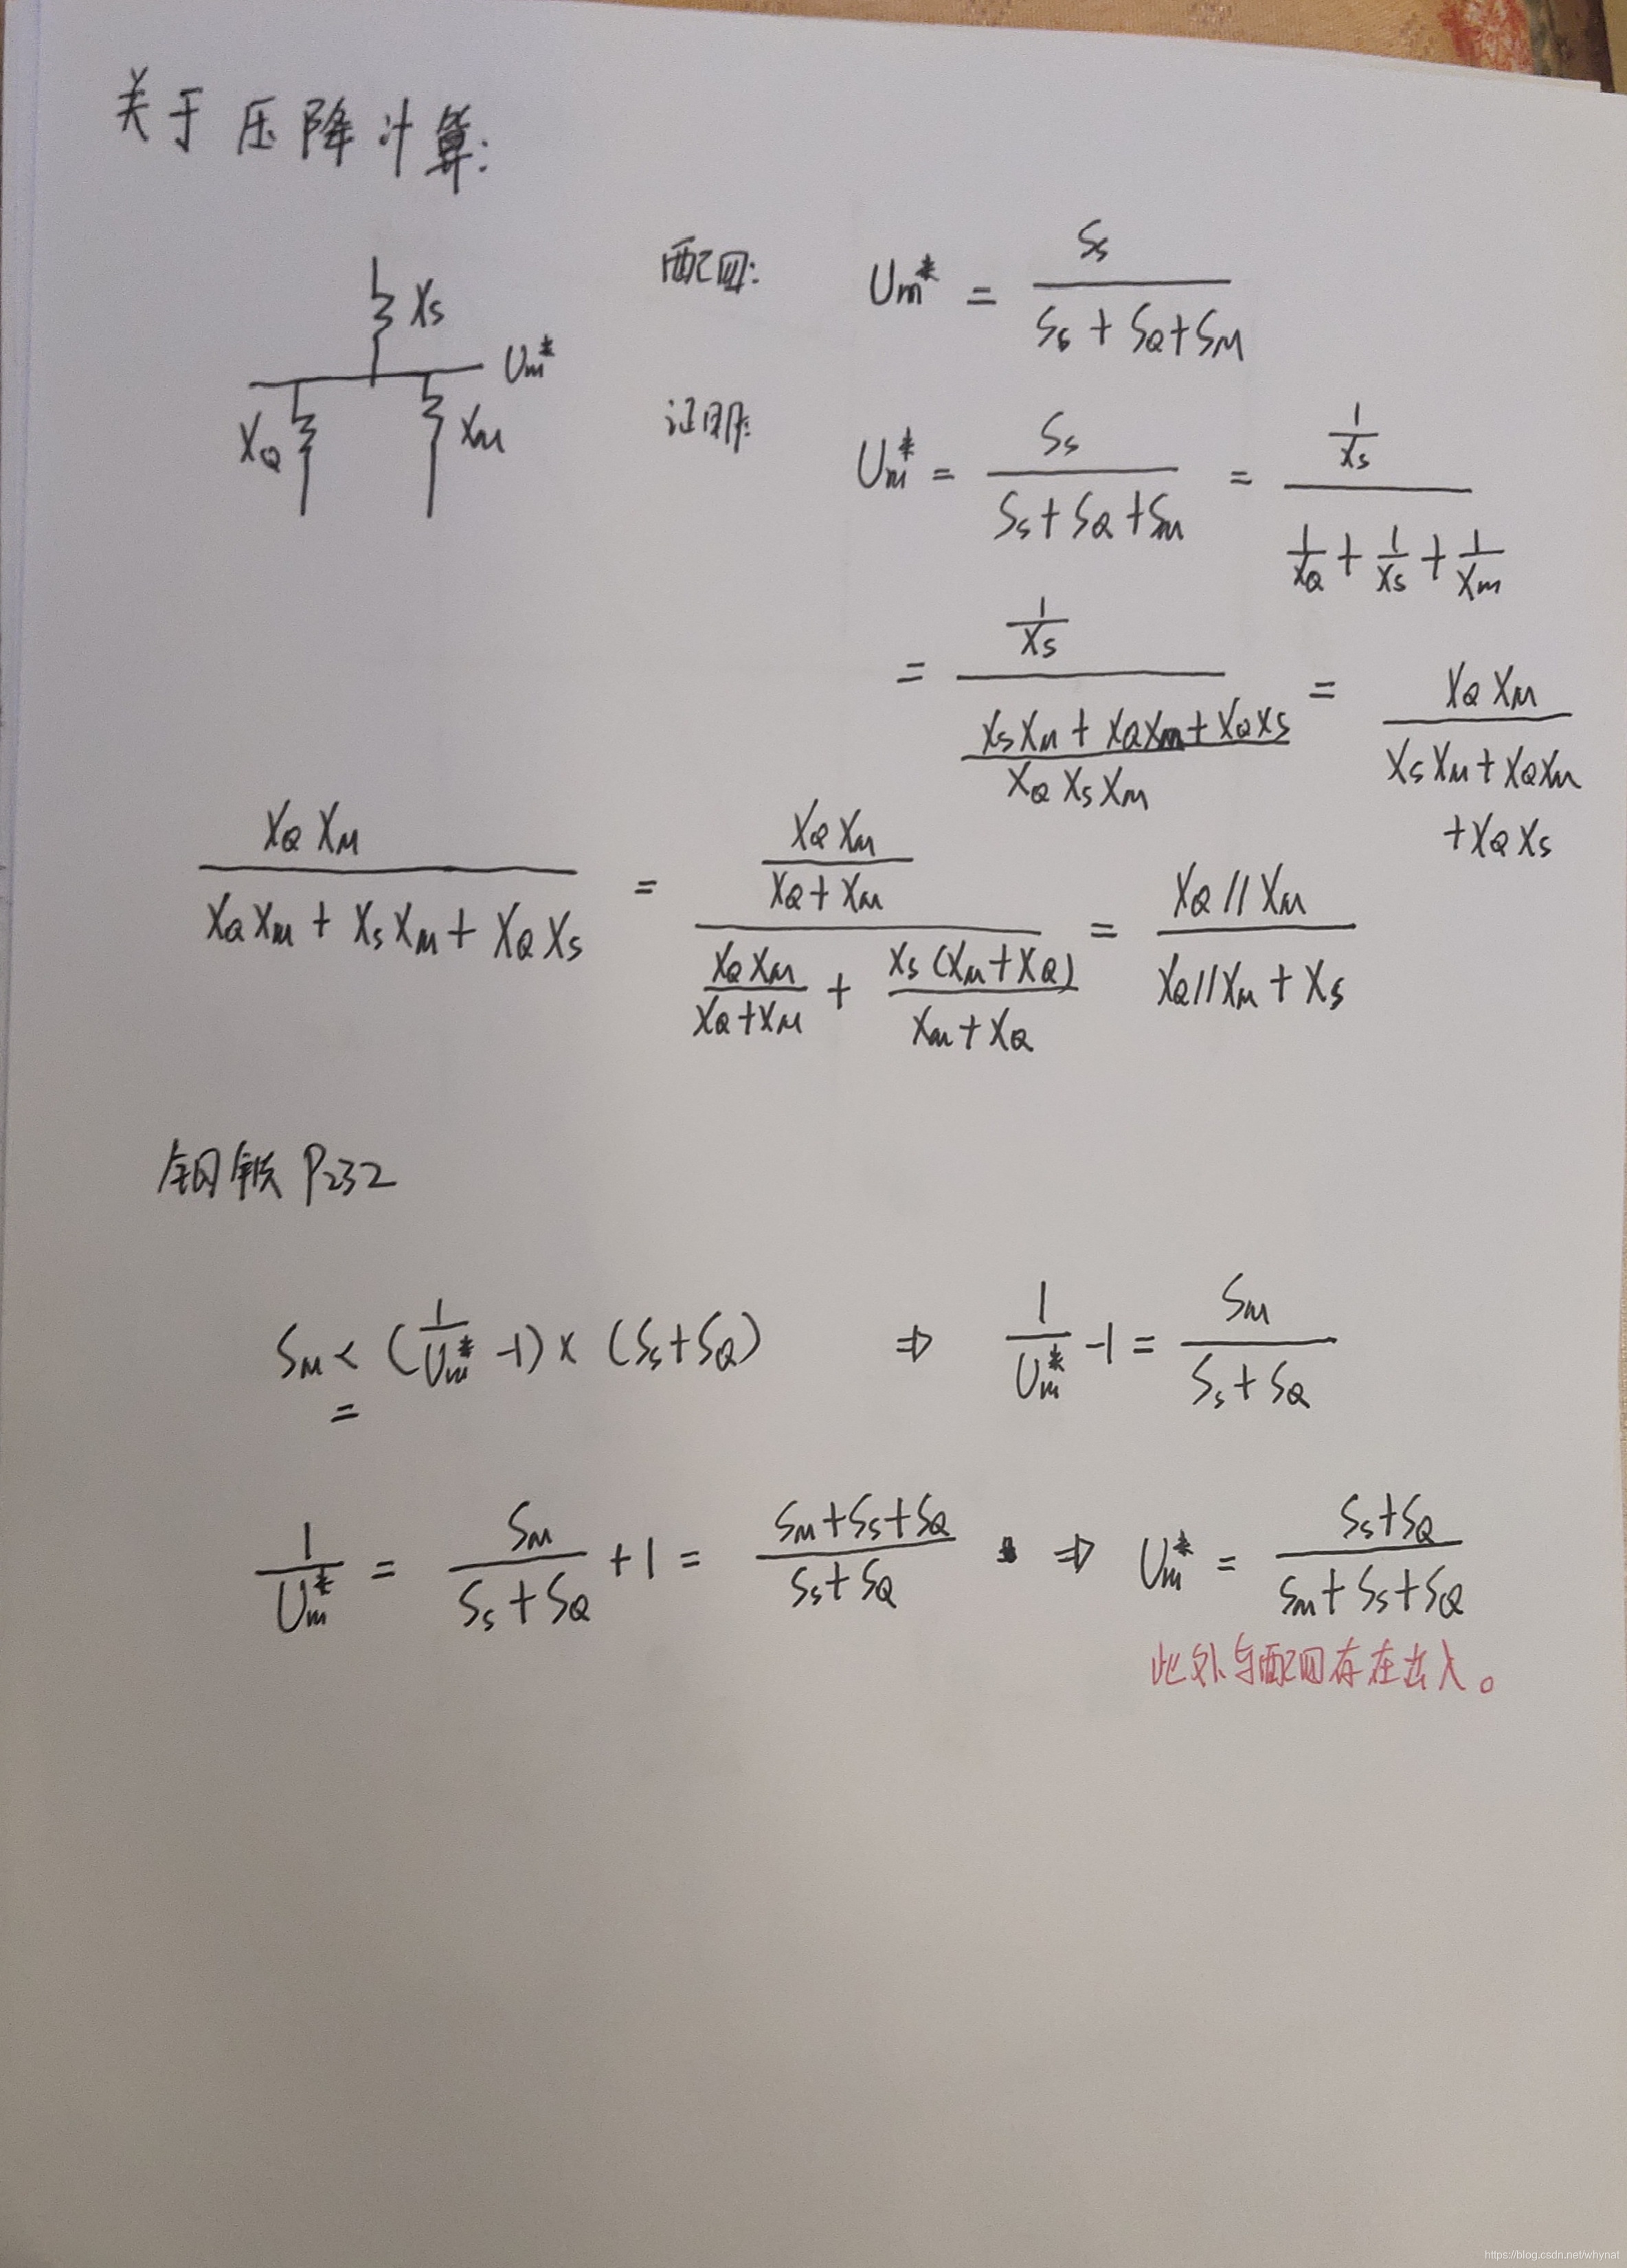 关于压降计算:
配四: Um* = Ss / (Ss + SQ + SM)
XS
Um*
XQ XM
证明: Um* = Ss / (Ss + SQ + SM) = (1/Xs) / (1/XQ + 1/Xs + 1/Xm)
= (1/Xs) / ((XsXM + XQXM + XQXS) / (XQXsXM)) = XQXM / (XsXM + XQXM + XQXs)
XQXM / (XQXM + XsXM + XQXs) = (XQXM / (XQ + XM)) / (XQXM / (XQ + XM) + Xs(XM + XQ) / (XM + XQ)) = XQ//XM / (XQ//XM + Xs)
钢铁 P232
SM < (1/Um* - 1) × (Ss + SQ) ⇒ 1/Um* - 1 = SM / (Ss + SQ)
=
1/Um* = SM / (Ss + SQ) + 1 = (SM + Ss + SQ) / (Ss + SQ) ⇒ Um* = (Ss + SQ) / (Sm + Ss + SQ)
此处与配四存在出入。
https://blog.csdn.net/whynat